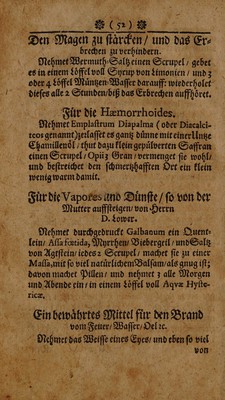 ( 52 )
Den Magen zu stärcken / und das Er-
brechen zu verhindern.
Nehmet Wermuth-Saltz einen Scrupel / gebet
es in einem Löffel voll Syrup von Limonien / und 3
oder 4 Löffel Müntzen-Wasser darauff: wiederholet
dieses alle 2 Stunden / biß das Erbrechen auffhöret.
Für die Hæmorrhoides.
Nehmet Emplastrum Diapalma ( oder Diacalci-
teos genannt) zerlasset es gantz dünne mit einer Untze
Chamillenöl / thut dazu klein gepülverten Saffran
einen Scrupel / Opii 3 Gran / vermenget sie wohl /
und bestreichet den schmertzhafften Ort ein klein
wenig warm damit.
Für die Vapores und Dünste / so von der
Mutter auffsteigen / von Herrn
D. Lower.
Nehmet durchgedruckt Galbanum ein Quent-
lein / Assa fœtida, Myrrhen / Biebergeil / und Saltz
von Agtstein / jedes 1 Scrupel / machet sie zu einer
Massa, mit so viel natürlichem Balsam / als gnug ist;
davon machet Pillen / und nehmet 3 alle Morgen
und Abende ein / in einem Löffel voll Aqvæ Hyste-
ricæ.
Ein bewährtes Mittel für den Brand
vom Feuer / Wasser / Oel ꝛc.
Nehmet das Weisse eines Eyes / und eben so viel
von